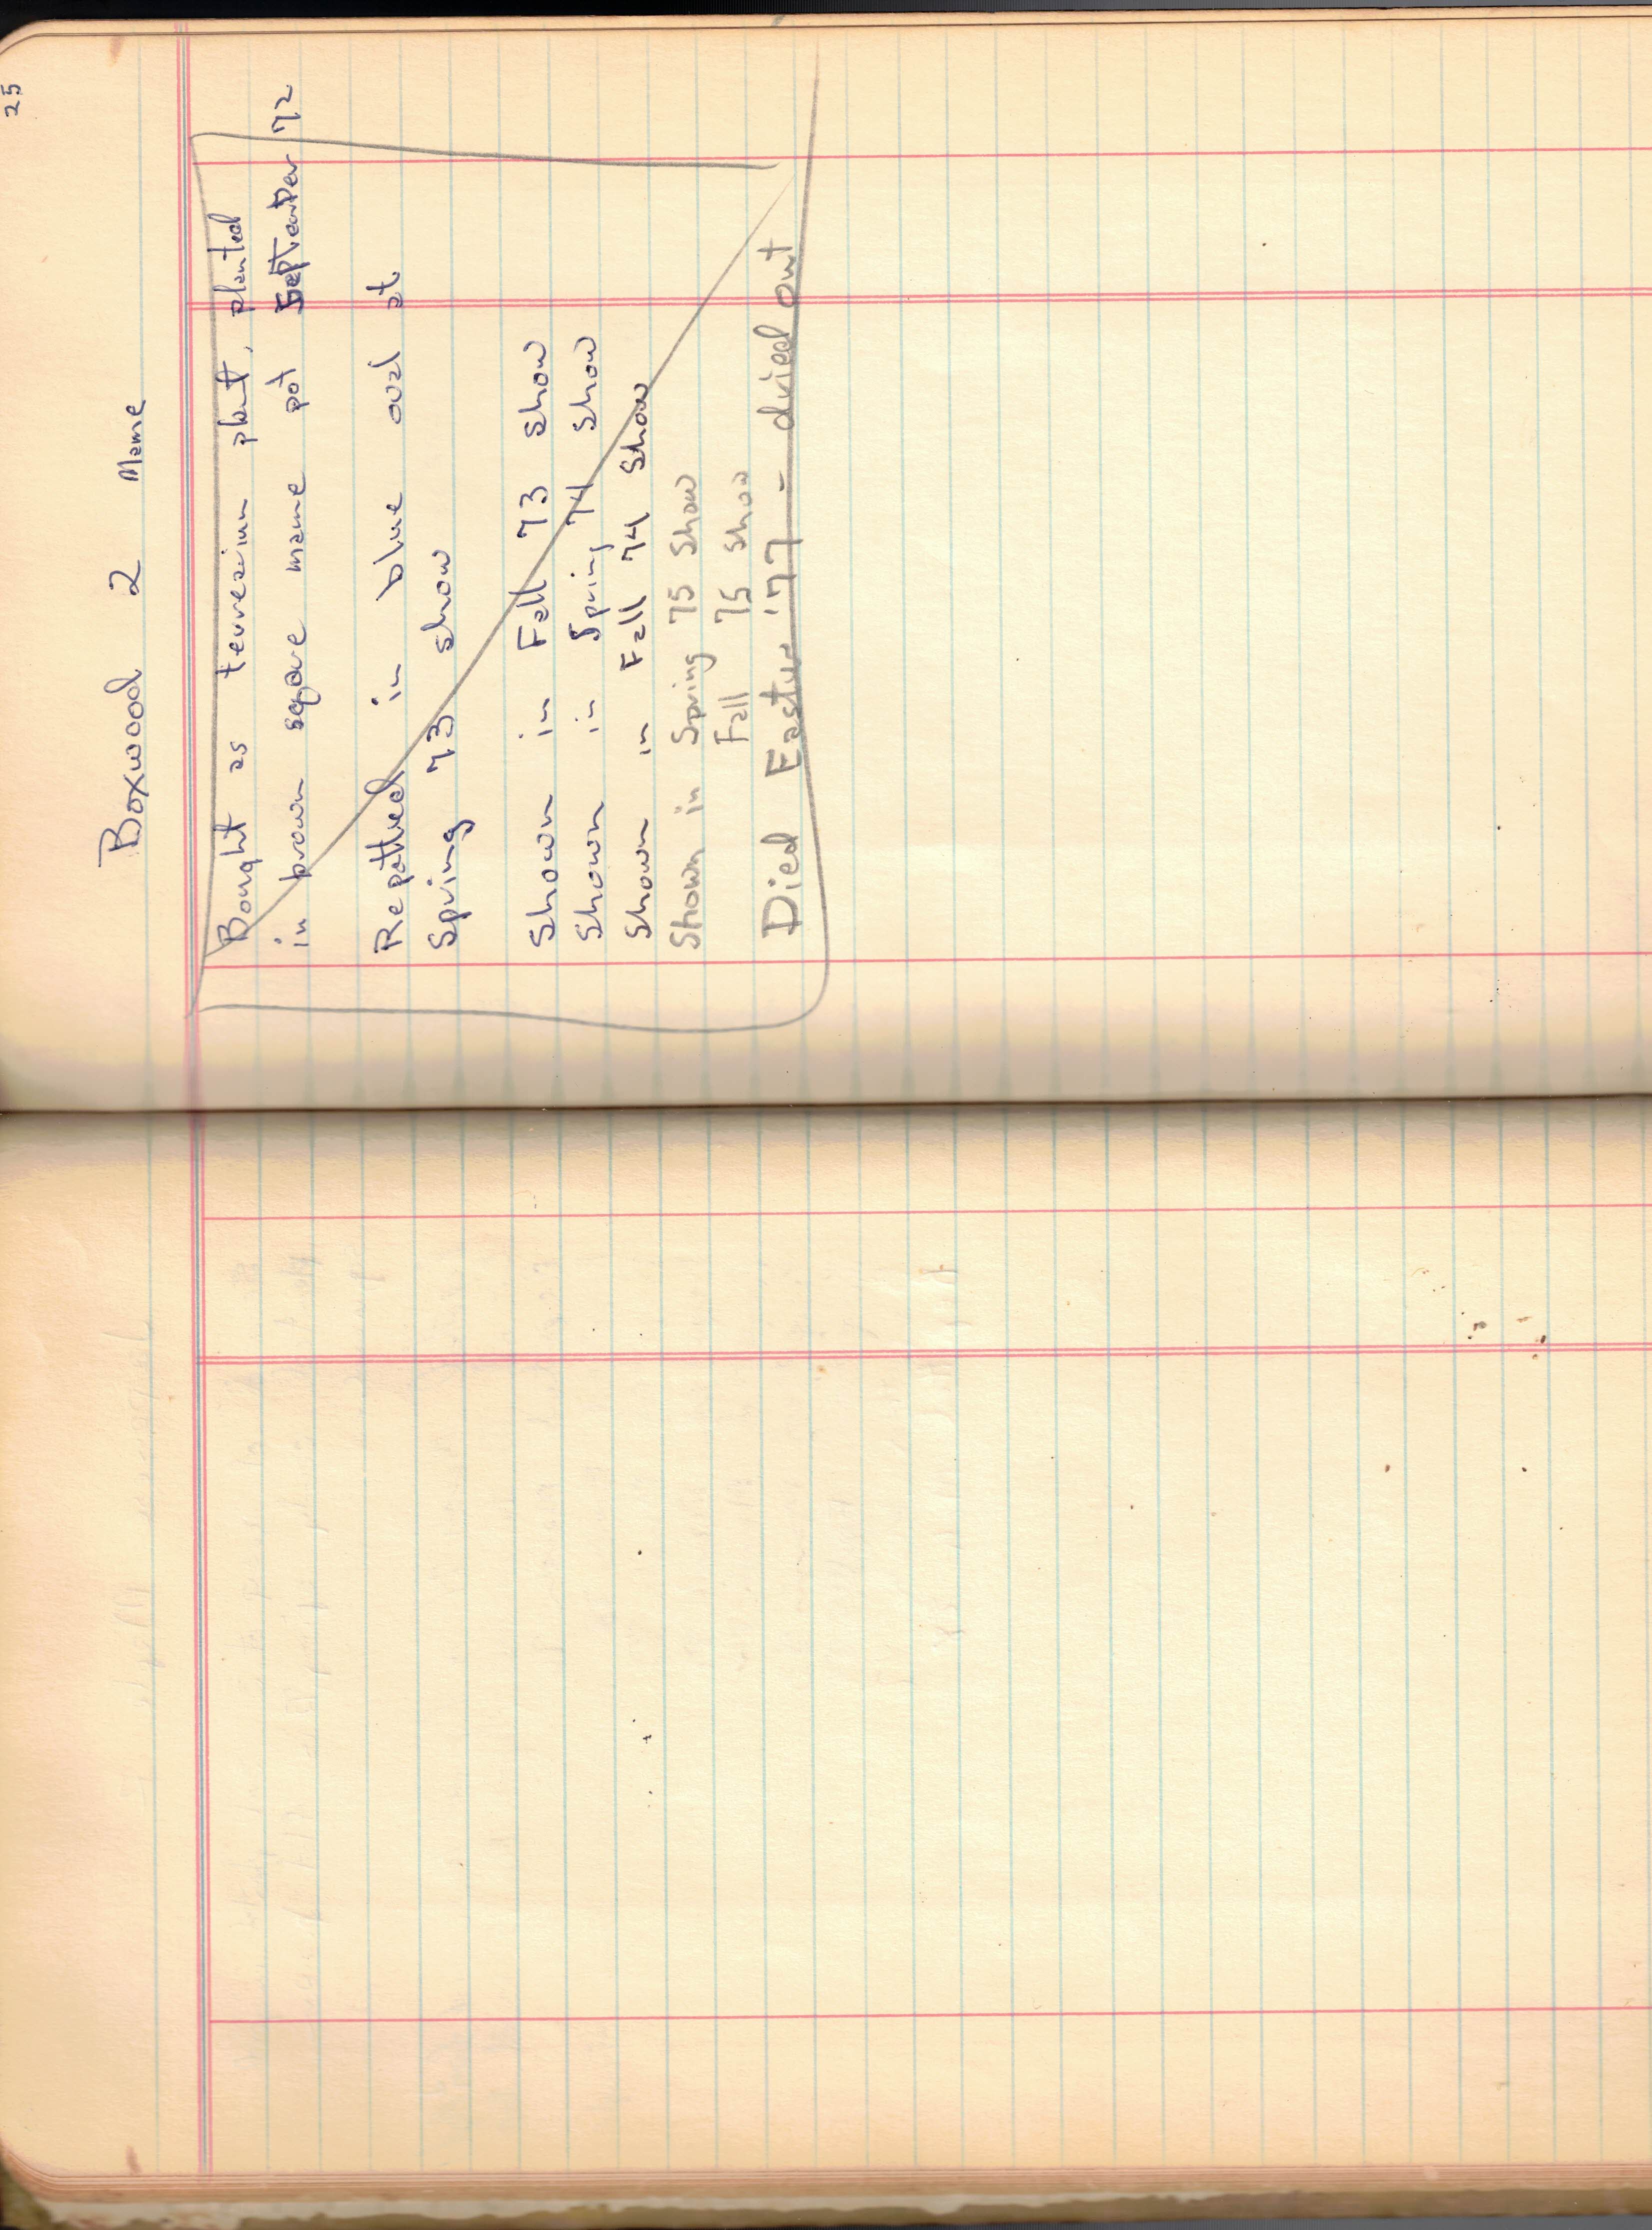 25
Boxwood 2 Mame
Bought as terrearium plant, planted
in brown sqare mame pot September 72
Repotted in blue oval at
Spring 73 show
Shown in Fall 73 show
Shown in Spring 74 Show
Shown in Fall 74 Show
Shown in Spring 75 Show
Fall 75 Show
Died Easter '77 - dried out